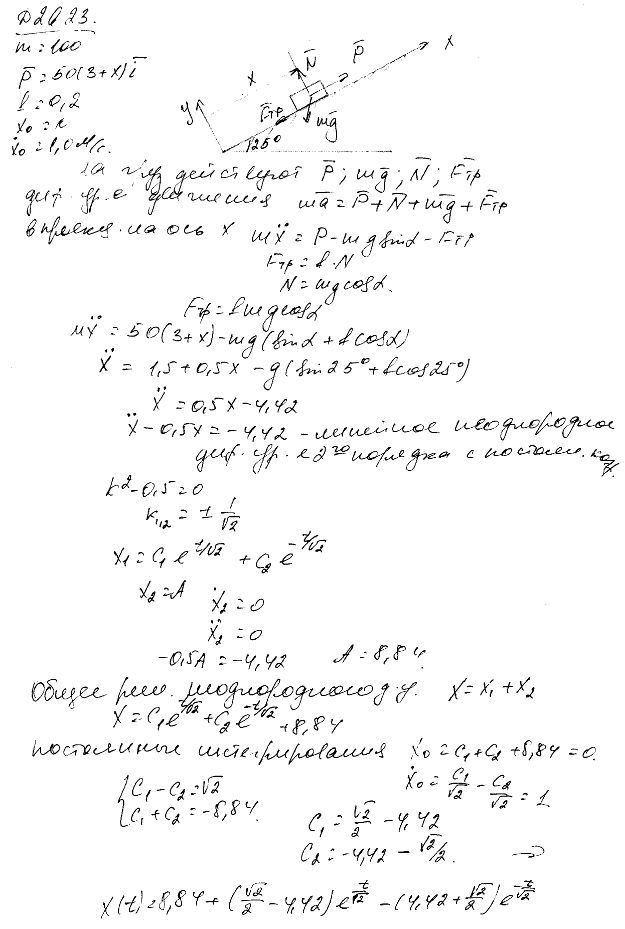 Д2А23.
m = 100
P̄ = 50(3+x)ī
f = 0,2
x₀ =
ẋ₀ = 1,0 м/с.
y x N̄ P̄ x
F̄тр mḡ
25°
На груз действуют P̄; mḡ; N̄; F̄тр
диф. ур-е движения mā = P̄ + N̄ + mḡ + F̄тр
в проекц. на ось x mẍ = P - mg sinα - Fтр
Fтр = f·N
N = mg cosα.
Fтр = f mg cosα
mẍ = 50(3+x) - mg(sinα + f cosα)
ẍ = 1,5 + 0,5x - g(sin25° + f cos25°)
ẍ = 0,5x - 4,42
ẍ - 0,5x = -4,42 - линейное неоднородное
диф. ур. е 2го порядка с постоян. коэф.
k² - 0,5 = 0
k₁,₂ = ± 1/√2
x₁ = C₁ e^(t/√2) + C₂ e^(-t/√2)
x₂ = A ẋ₂ = 0
ẍ₂ = 0
-0,5A = -4,42 A = 8,84.
Общее реш. неоднородного д.у. x = x₁ + x₂
x = C₁e^(t/√2) + C₂e^(-t/√2) + 8,84
постоянные интегрирования x₀ = C₁ + C₂ + 8,84 = 0.
ẋ₀ = C₁/√2 - C₂/√2 = 1
{ C₁ - C₂ = √2
{ C₁ + C₂ = -8,84.
C₁ = √2/2 - 4,42
C₂ = -4,42 - √2/2. →
x(t) = 8,84 + (√2/2 - 4,42)e^(t/√2) - (4,42 + √2/2)e^(-t/√2)